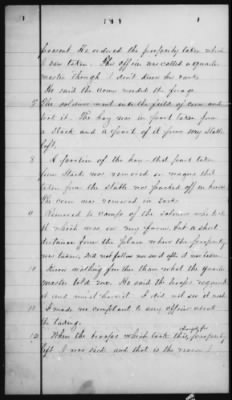 present. He ordered the property taken when
it was taken. The officer was called a quarter
master though I don't know his rank.
He said the army needed the forage.
7 The soldiers went into the field of corn and
took it. The hay was in part taken from
a stack and a part of it from my stable
loft.
8 A portion of the hay - that part taken
from Stack was removed in wagons that
taken from the stable was packed off on horses
The corn was removed in sacks.
9 Removed to camps of the soldiers who took
it which was on my farm, but a short
distance from the place where the property
was taken. Did not follow
10 Know nothing further than what the quarter
master told me. He said the troops required
it and must have it. I did not see it used
11 I made no complaint to any officer about
the taking.
12 When the troops which took this property
left I was sick and that is the reason I